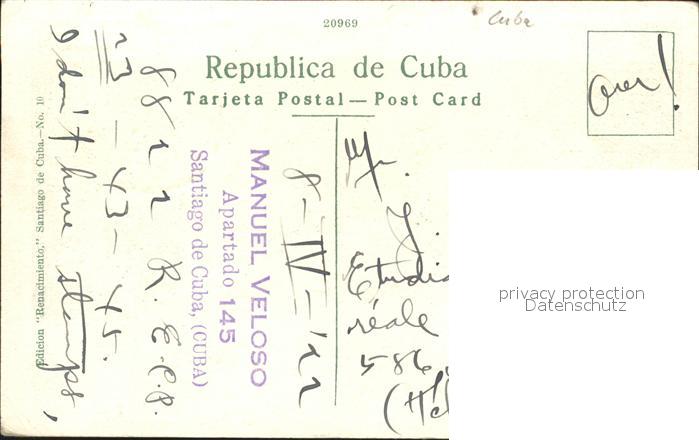 20969
Cuba
Republica de Cuba
Tarjeta Postal — Post Card
over!
Edicion "Renacimiento," Santiago de Cuba.—No. 10
I don't have stamps,
23 – 43 – 45.
8822 R.E.C.P.
MANUEL VELOSO
Apartado 145
Santiago de Cuba, (CUBA)
8–IV–'22
Mr.
J.
Etudia
réale
586,
privacy protection
Datenschutz